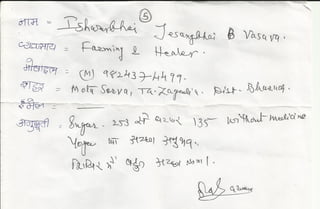 ⑤
नाम = Ishwarbhai Jesangbhai B Vasava.
व्यवसाय = Farming & Healer.
मोबाइल = (M) 98243-74499.
शहर = Mota Sorva, Ta. Zagadia. Dist. Bharuch.
ईमेल =
अनुभूती = Sugar. 253 से घटकर 135 without medicine
Yoga का अच्छा अनुभव.
शिबिर में बहुत अच्छा लगा.